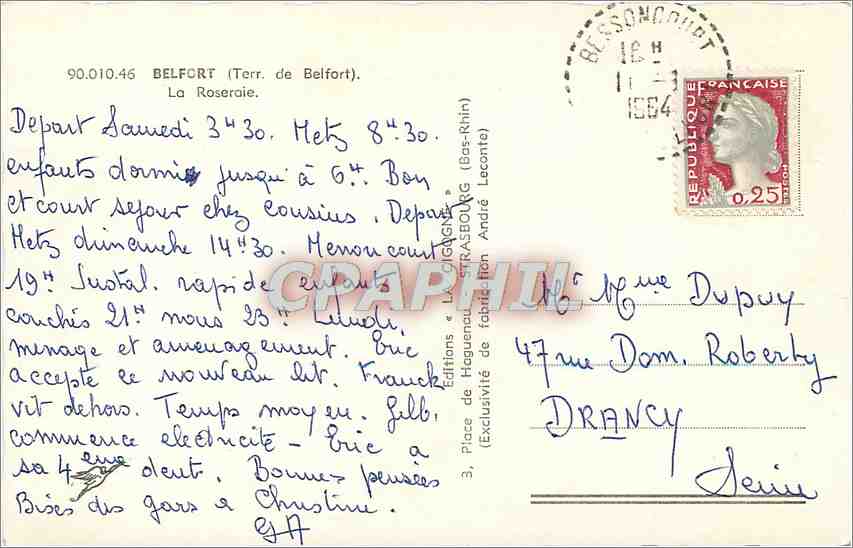 90.010.46 BELFORT (Terr. de Belfort).
La Roseraie.
Depart Samedi 3H30. Metz 8H30.
enfants dormis jusqu'à 6H. Bon
et court sejour chez cousins. Depart
Metz dimanche 14H30. Menoncourt
19H Instal. rapide enfants
couchés 21H nous 23H Lundi,
menage et amenagement. Eric
accepte ce nouveau lit. Franck
vit dehors. Temps moyen. Gilb.
commence electricité - Eric a
sa 4eme dent. Bonnes pensées
Bises des gars & Christine.
GA
Editions « LA CIGOGNE »
3, Place de Haguenau STRASBOURG (Bas-Rhin)
(Exclusivité de fabrication André Leconte)
BESSONCOURT
16H
1964
REPUBLIQUE FRANCAISE
0,25
Mr Mme Dupuy
47 rue Dom. Roberty
DRANCY
Seine
CPARPHIL